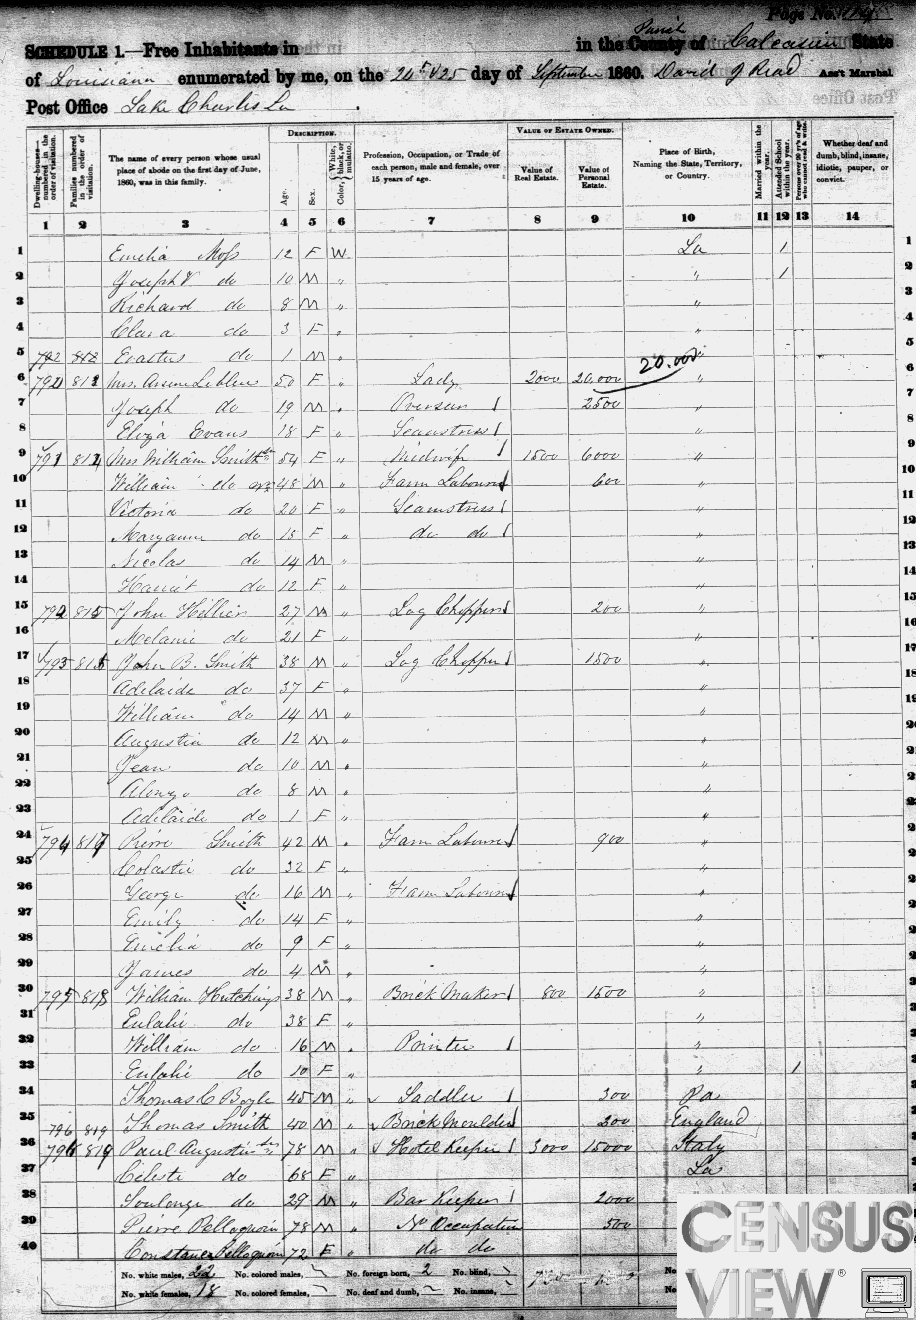 Page No.
SCHEDULE 1.—Free Inhabitants in in the County of Parish Calcasieu State
of Louisiana enumerated by me, on the 24 & 25 day of September 1860. David J Read Ass't Marshal
Post Office Lake Charles La
DESCRIPTION. VALUE OF ESTATE OWNED.
Dwelling-houses—numbered in the order of visitation. Families numbered in the order of visitation. The name of every person whose usual place of abode on the first day of June, 1860, was in this family. Age. Sex. Color, White, black, or mulatto. Profession, Occupation, or Trade of each person, male and female, over 15 years of age. Value of Real Estate. Value of Personal Estate. Place of Birth, Naming the State, Territory, or Country. Married within the year. Attended School within the year. Persons over 20 y'rs of age who cannot read & write. Whether deaf and dumb, blind, insane, idiotic, pauper, or convict.
1 2 3 4 5 6 7 8 9 10 11 12 13 14
1 Emelia Moss 12 F W La 1 1
2 Joseph V do 10 M " " 1 2
3 Richard do 8 M " " 3
4 Clara do 3 F " " 4
5 792 812 Erastus do 1 M " "
6 Mrs. 50 F " Lady 2000 20,000 20.000 "
7 Joseph do 19 M " Overseer 2500 "
8 Eliza Evans 18 F " Seamstress "
9 791 Mrs William Smith 54 F " Midwife 1500 6000 "
10 William do 48 M " Farm Labourer 600 "
11 Victoria do 20 F " Seamstress "
12 Maryanne do 15 F " do do "
13 Nicolas do 14 M " "
14 Harriet do 12 F " "
15 792 815 John Hillier 27 M " Log Chipper 200 "
16 Melanie do 21 F " "
17 793 John B. Smith 38 M " Log Chipper 1500 "
18 Adelaide do 37 F " "
19 William do 14 M " "
20 Augustin do 12 M " "
21 Jean do 10 M " "
22 Alonzo do 8 M " "
23 Adelaide do 1 F " "
24 794 817 Pierre Smith 42 M " Farm Labourer 900 "
25 Celestie do 32 F " "
26 George do 16 M " Farm Labourer "
27 Emily do 14 F " "
28 Emelia do 9 F " "
29 James do 4 M " "
30 795 818 William Hutchings 38 M " Brick Maker 800 1500 "
31 Eulalie do 38 F " "
32 William do 16 M " Printer "
33 Eulalie do 10 F " " 1
34 Thomas C Boyle 45 M " Saddler 300 Pa
35 796 819 Thomas Smith 40 M " Brick Moulder 200 England
36 819 Paul Augustin 78 M " Hotel Keeper 3000 15000 Italy
37 Celeste do 68 F " La
38 do 29 M " Bar Keeper 2000
39 Pierre Pelloquin 78 M " No Occupation 500
40 Constance Pelloquin 72 F " do do
No. white males, 22 No. colored males, No. foreign born, 2 No. blind, No.
No. white females, 18 No. colored females, No. deaf and dumb, No. insane, No.
CENSUS
VIEW®